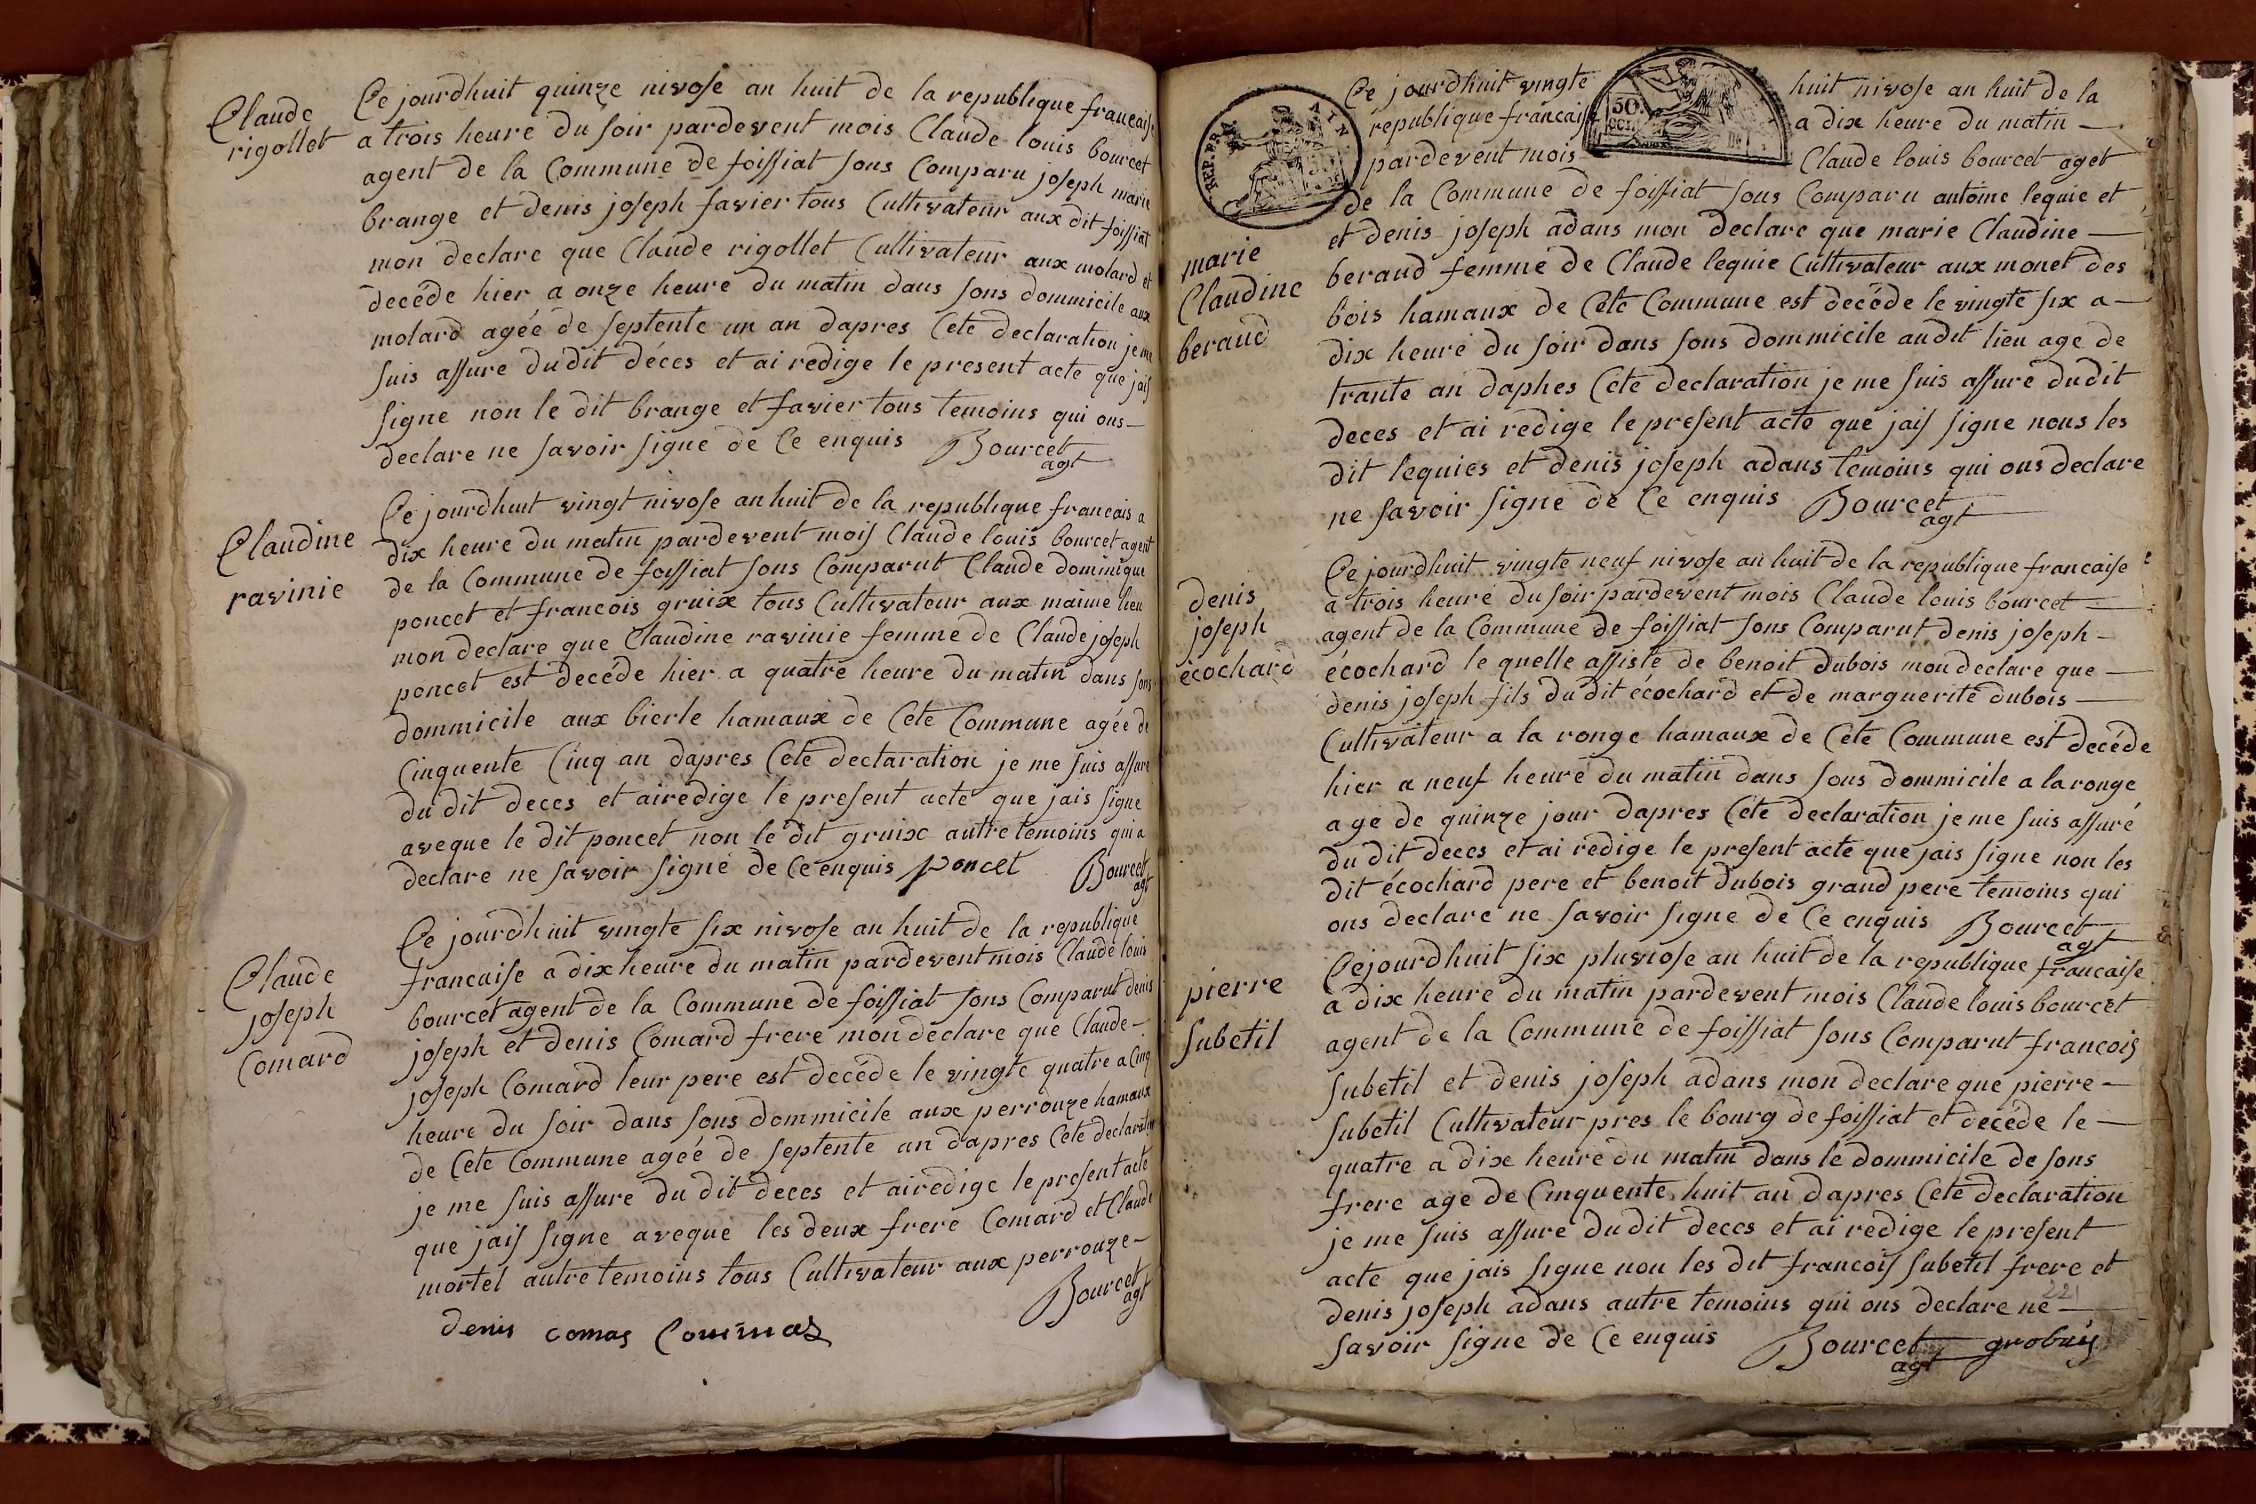 Claude
rigollet
Ce jourdhuit quinze nivose an huit de la republique francaise
a trois heure du soir pardevent mois Claude louis bourcet
agent de la Commune de foissiat sons Comparu joseph marie
brange et denis joseph favier tous Cultivateur aux dit foissiat
mon declare que Claude rigollet Cultivateur aux molard et
decéde hier a onze heure du matin dans sons dommicile aux
molard agée de septente un an dapres Cete declaration je me
suis assure dudit déces et ai redige le present acte que jais
signe non le dit brange et favier tous temoins qui ons
declare ne savoir signe de Ce enquis Bourcet
agt
Claudine
ravinie
Ce jourdhuit vingt nivose an huit de la republique francais a
dix heure du matin pardevent mois Claude louis bourcet agent
de la Commune de foissiat sons Comparut Claude dominique
poncet et francois gruix tous Cultivateur aux maime lieu
mon declare que Claudine ravinie femme de Claude joseph
poncet est decéde hier a quatre heure du matin dans sons
dommicile aux bierle hamaux de Cete Commune agée de
Cinquente Cinq an dapres Cete declaration je me suis assure
du dit deces et ai redige le present acte que jais signe
aveque le dit poncet non le dit gruix autre temoins qui a
declare ne savoir signe de Ce enquis poncet Bourcet
agt
Claude
joseph
Comard
Ce jourdhuit vingte six nivose an huit de la republique
francaise a dix heure du matin pardevent mois Claude louis
bourcet agent de la Commune de foissiat sons Comparut denis
joseph et denis Comard frere mon declare que Claude
joseph Comard leur pere est decéde le vingte quatre a Cinq
heure du soir dans sons dommicile aux perrouze hamaux
de Cete Commune ageé de septente an dapres Cete declaration
je me suis assure du dit deces et ai redige le present acte
que jais signe aveque les deux frere Comard et Claude
mortel autre temoins tous Cultivateur aux perrouze
Bourcet
agt
denis comas
REP. FRA
AIN
50
CEN
marie
Claudine
beraud
Ce jourdhuit vingte huit nivose an huit de la
republique francaise a dix heure du matin
pardevent mois Claude louis bourcet aget
de la Commune de foissiat sons Comparu antoine lequie et
et denis joseph adans mon declare que marie Claudine
beraud femme de Claude lequie Cultivateur aux monet des
bois hamaux de Cete Commune est decéde le vingte six a
dix heure du soir dans sons dommicile audit lieu age de
trante an daphes Cete declaration je me suis assure dudit
deces et ai redige le present acte que jais signe nous les
dit lequies et denis joseph adans temoins qui ons declare
ne savoir signe de Ce enquis Bourcet
agt
denis
joseph
écochard
Ce jourdhuit vingte neuf nivose an huit de la republique francaise
a trois heure du soir pardevent mois Claude louis bourcet
agent de la Commune de foissiat sons Comparut denis joseph
écochard le quelle assiste de benoit dubois mon declare que
denis joseph fils du dit écochard et de marguerite dubois
Cultivateur a la ronge hamaux de Cete Commune est decéde
hier a neuf heure du matin dans sons dommicile a la ronge
age de quinze jour dapres Cete declaration je me suis assuré
du dit deces et ai redige le present acte que jais signe non les
dit écochard pere et benoit dubois grand pere temoins qui
ons declare ne savoir signe de Ce enquis Bourcet
agt
pierre
subetil
Ce jourdhuit six pluviose an huit de la republique francaise
a dix heure du matin pardevent mois Claude louis bourcet
agent de la Commune de foissiat sons Comparut francois
subetil et denis joseph adans mon declare que pierre
subetil Cultivateur pres le bourg de foissiat et decéde le
quatre a dix heure du matin dans le dommicile de sons
frere age de Cinquente huit an dapres Cete declaration
je me suis assure dudit deces et ai redige le present
acte que jais signe non les dit francois subetil frere et
denis joseph adans autre temoins qui ons declare ne
221
savoir signe de Ce enquis Bourcet
agt